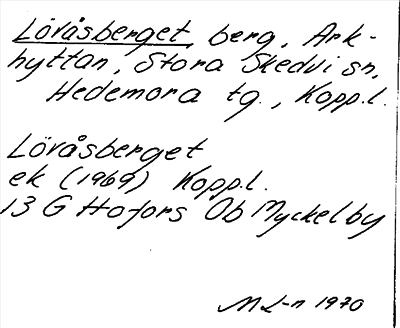 Lövåsberget, berg, Ark-
hyttan, Stora Skedvi sn,
Hedemora tg., Kopp.l.
Lövåsberget
ek (1969) Kopp.l.
13 G Hofors Ob Myckelby
M L-n 1970